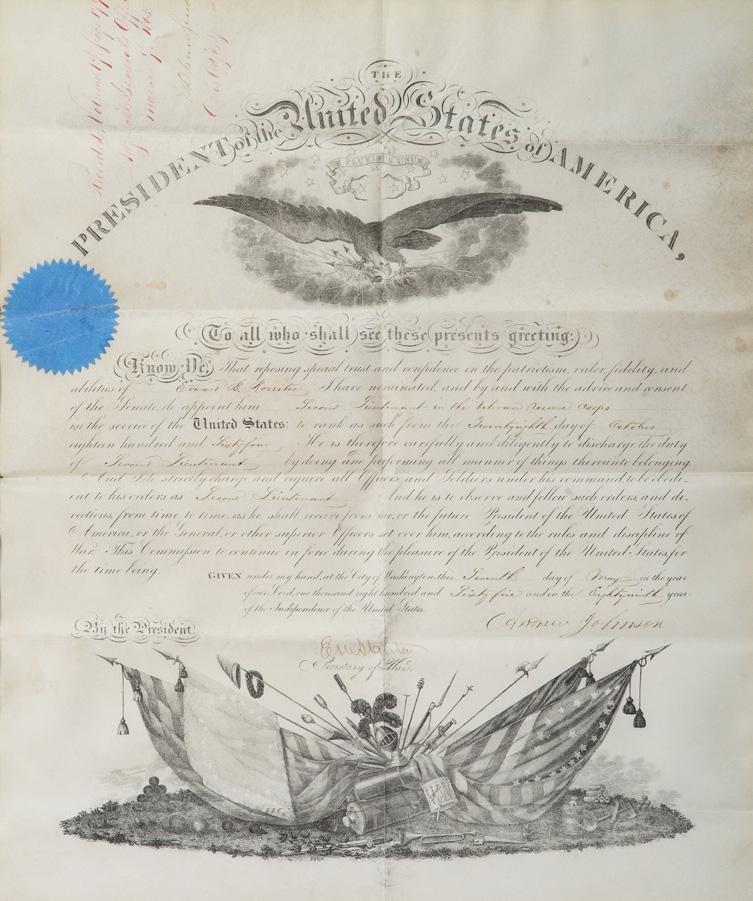 THE
PRESIDENT of the United States of AMERICA,
E PLURIBUS UNUM
To all who shall see these presents greeting:
Know Ye, That reposing special trust and confidence in the patriotism, valor, fidelity, and
abilities of Edward I have nominated, and by and with the advice and consent
of the Senate, do appoint him Second Lieutenant in the Veteran Reserve Corps
in the service of the United States: to rank as such from the Twentyeighth day of October
eighteen hundred and Sixtyfour He is therefore carefully and diligently to discharge the duty
of Second Lieutenant by doing and performing all manner of things thereunto belonging
And I do strictly charge and require all Officers and Soldiers under his command to be obedi-
ent to his orders as Second Lieutenant And he is to observe and follow such orders, and di-
rections, from time to time, as he shall receive from me, or the future President of the United States of
America, or the General, or other superior Officers set over him, according to the rules and discipline of
War. This Commission to continue in force during the pleasure of the President of the United States, for
the time being.
GIVEN under my hand, at the City of Washington, this Seventh day of May in the year
of our Lord, one thousand eight hundred and Sixty five and in the Eighty ninth year
of the Independence of the United States.
Andrew Johnson
By the President
Secretary of War.